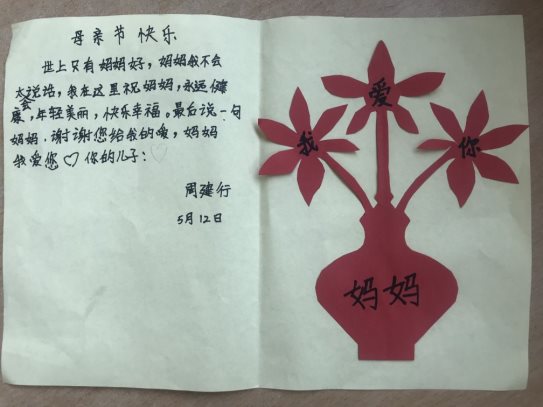 母亲节快乐
世上只有妈妈好，妈妈我不会
太会说话，我在这里祝妈妈，永远健
康，年轻美丽，快乐幸福。最后说一句
妈妈，谢谢您给我的爱，妈妈
我爱您♡你的儿子：♡
周建行
5月12日
爱
我
你
妈妈